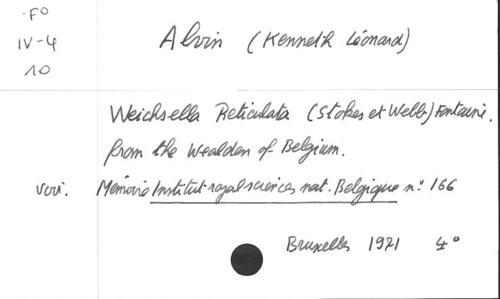 F°
IV-4
10
Alvin (Kenneth Léonard)
Weichsella Reticulata (Stokes et Webb) Fontaine.
from the Wealden of Belgium.
voir. Mémoire Institut royal sciences nat. Belgique n° 166
Bruxelles 1971 4°